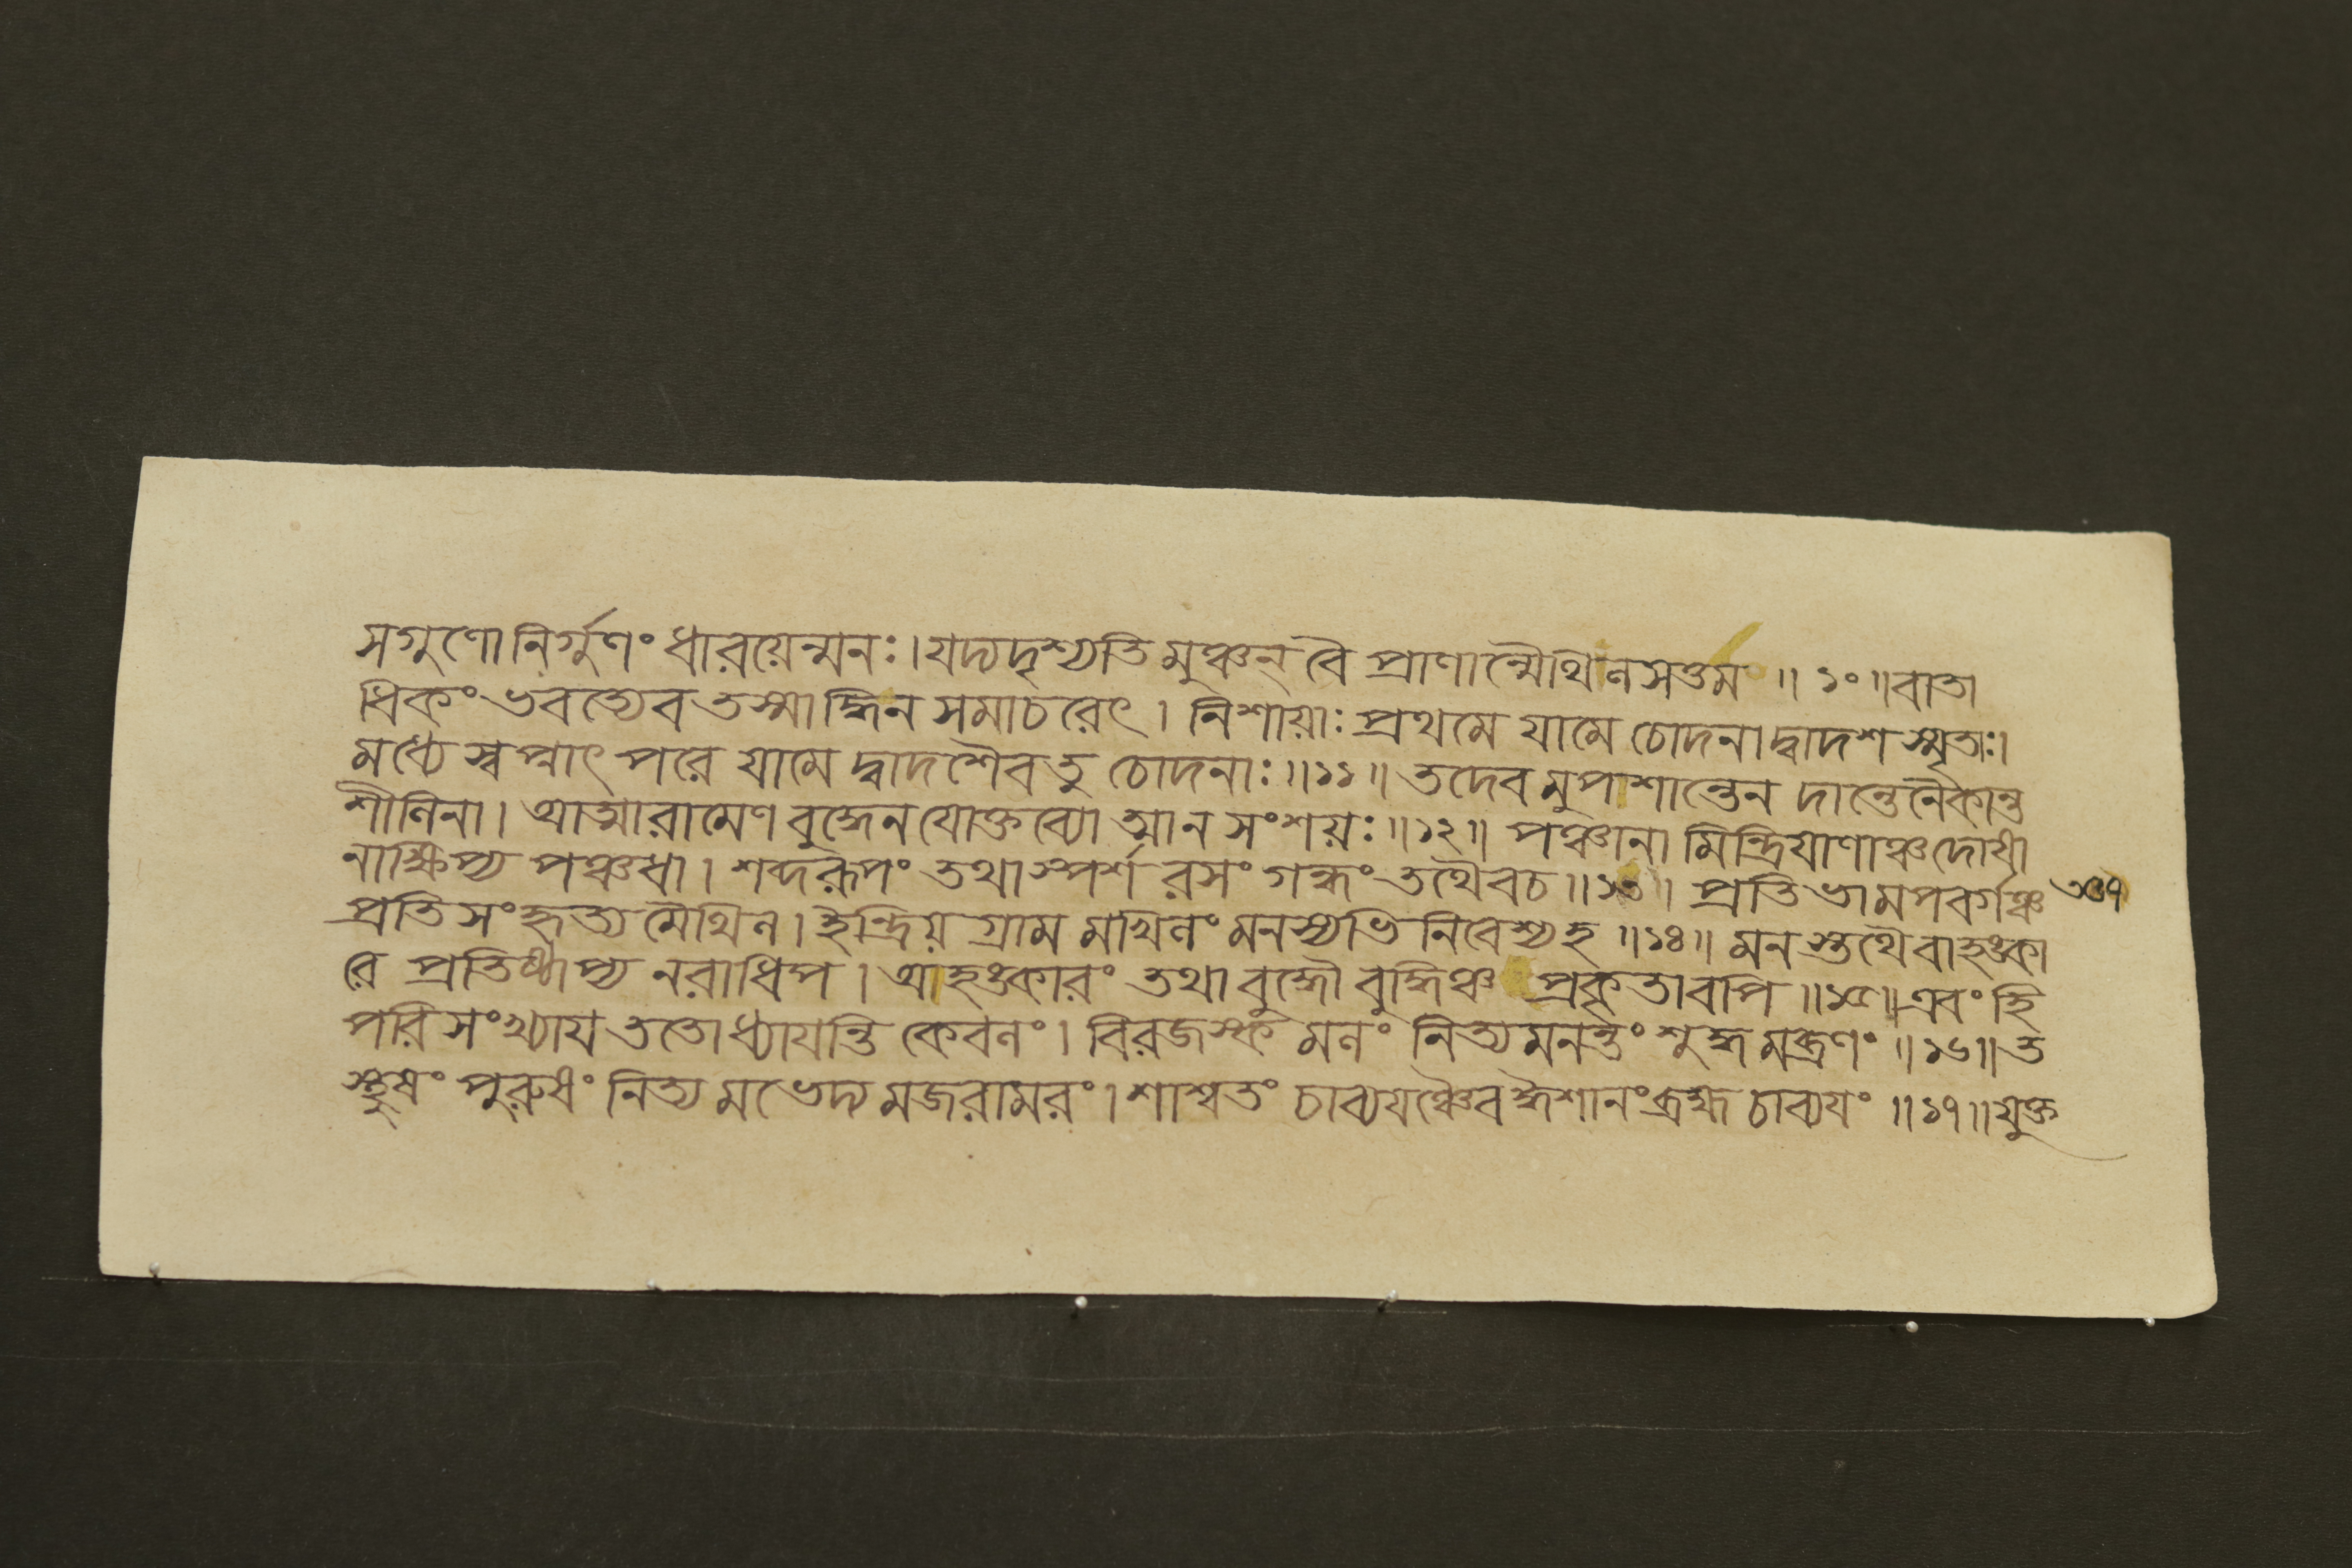 সগুণো নির্গুণং ধারয়েন্মনঃ । যদ্যদৃশ্যতি মুঞ্চন্ বৈ প্রাণান্মৈথিলসত্তম ॥ ১০ ॥ বাতা
ধিকং ভবত্যেব তস্মাদ্ধি ন সমাচরেৎ । নিশায়াঃ প্রথমে যামে চোদনা দ্বাদশ স্মৃতাঃ ।
মধ্যে স্বপ্নাৎ পরে যামে দ্বাদশৈব তু চোদনাঃ ॥ ১১ ॥ তদেবমুপশান্তেন দান্তেনৈকান্ত
শীলিনা । আত্মারামেণ বুদ্ধেন যোক্তব্যো আ ন সংশয়ঃ ॥ ১২ ॥ পঞ্চানামিন্দ্রিয়াণাঞ্চ দোষা
নাক্ষিপ্য পঞ্চধা । শব্দরূপং তথা স্পর্শ রসং গন্ধং তথৈব চ ॥ ১৩ ॥ প্রতিভামপবর্গঞ্চ
প্রতিসংহৃত্য মৈথিল । ইন্দ্রিয়গ্রামমখিলং মনস্যভিনিবেশ্য হ ॥ ১৪ ॥ মনস্তথৈবাহঙ্কা
রে প্রতিষ্ঠাপ্য নরাধিপ । আহঙ্কারং তথা বুদ্ধৌ বুদ্ধিঞ্চ প্রকৃতাবপি ॥ ১৫ ॥ এবং হি
পরিসংখ্যায় ততো ধ্যায়ন্তি কেবলং । বিরজস্কমলং নিত্যমনন্তং শুদ্ধমব্রণং ॥ ১৬ ॥ ত
স্থুষং পুরুষং নিত্যমভেদ্যমজরামরং । শাশ্বতং চাব্যয়ঞ্চৈব ঈশানং ব্রহ্ম চাব্যয়ং ॥ ১৭ ॥ যুক্ত